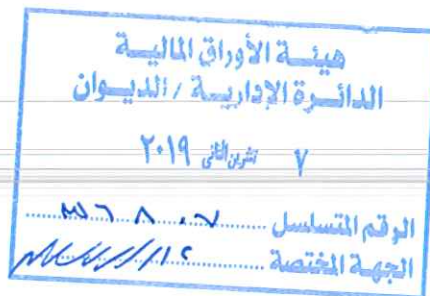 هيئة الأوراق المالية
الدائرة الإدارية / الديوان
٧ تشرين الثاني ٢٠١٩
الرقم المتسلسل ٣٦٨٠٧
الجهة المختصة